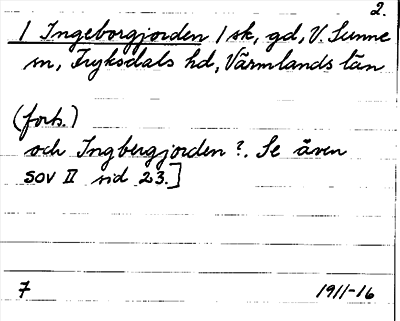 2.
/ Ingeborgjorden / sk, gd, V. Sunne
sn, Fryksdals hd, Värmlands län
(forts.)
och Ingbergjorden?. Se även
SOV II sid 23.]
7 1911-16